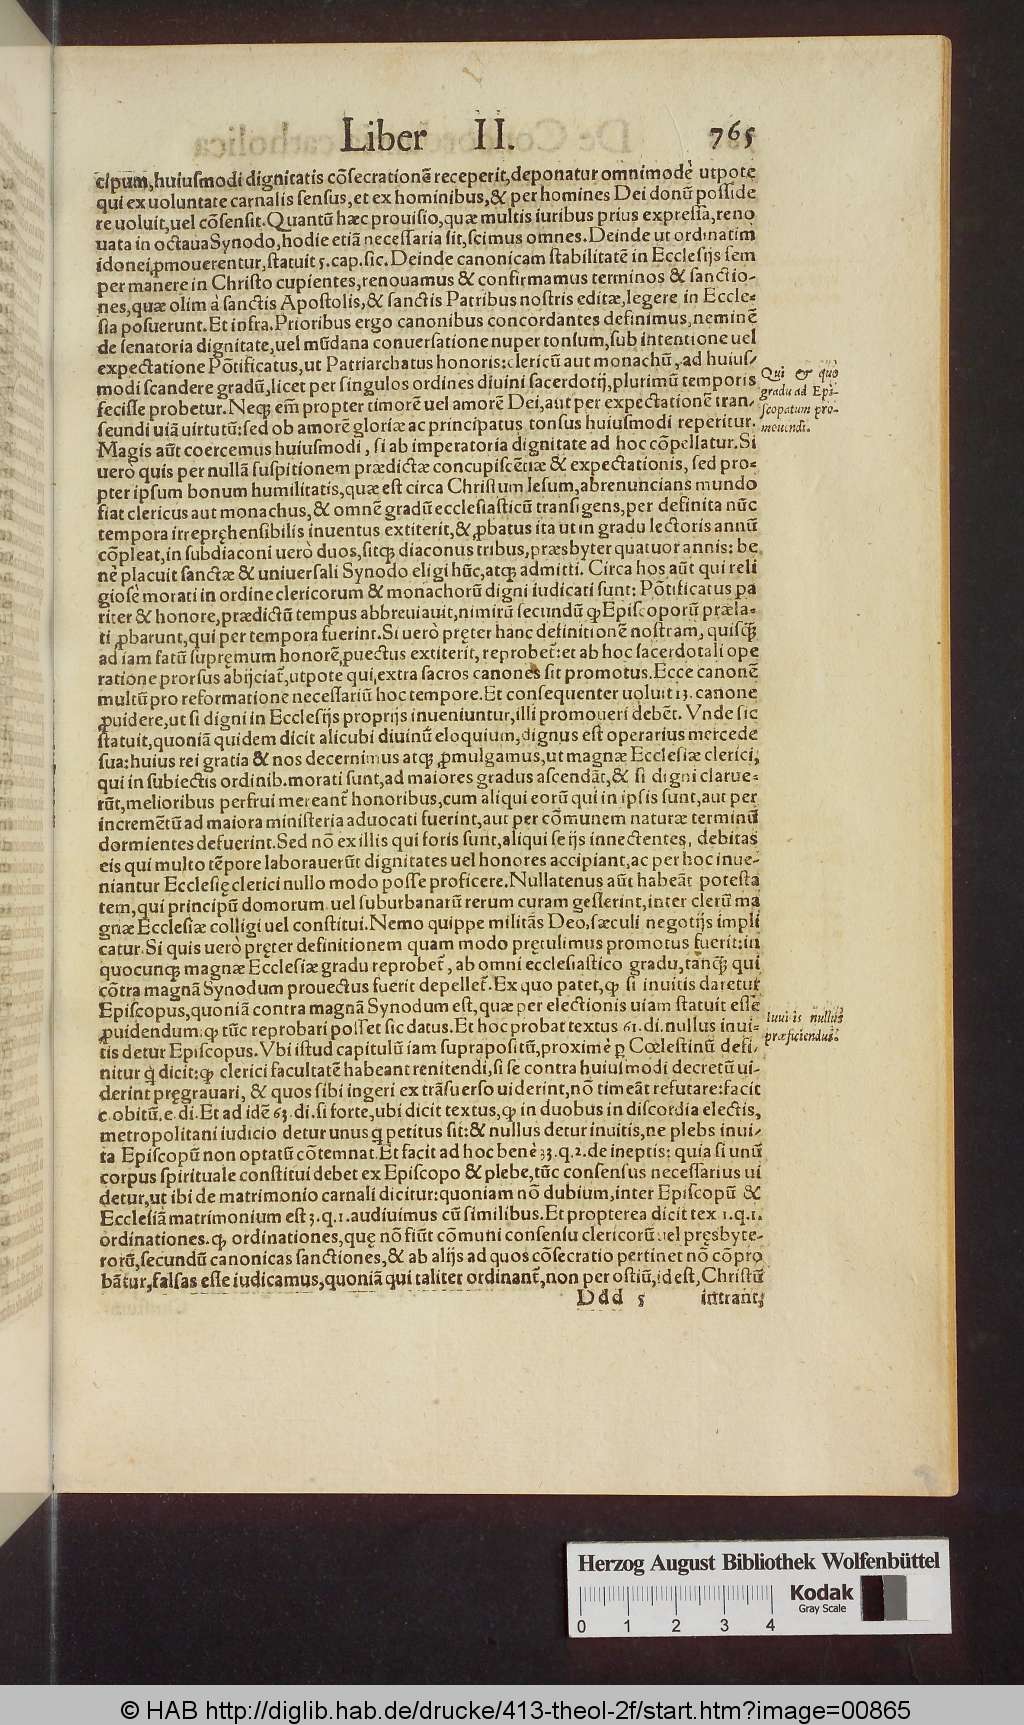 Liber II. 765
cipum,huiusmodi dignitatis cõsecrationẽ receperit,deponatur omnimodè utpote
qui ex uoluntate carnalis sensus,et ex hominibus,& per homines Dei donũ posside
re uoluit,uel cõsensit.Quantũ hæc prouisio,quæ multis iuribus prius expressa,reno
uata in octaua Synodo,hodie etiã necessaria sit,scimus omnes.Deinde ut ordinatim
idonei ꝓmouerentur,statuit 5.cap.sic.Deinde canonicam stabilitatẽ in Ecclesijs sem
per manere in Christo cupientes,renouamus & confirmamus terminos & sanctio-
nes,quæ olim à sanctis Apostolis,& sanctis Patribus nostris editæ,legere in Eccle-
sia posuerunt.Et infra.Prioribus ergo canonibus concordantes definimus,neminẽ
de senatoria dignitate,uel mũdana conuersatione nuper tonsum,sub intentione uel
expectatione Põtificatus,ut Patriarchatus honoris:clericũ aut monachũ,ad huius-
modi scandere gradũ,licet per singulos ordines diuini sacerdotij,plurimũ temporis
fecisse probetur.Neqꝫ em̃ propter timorẽ uel amorẽ Dei,aut per expectationẽ tran-
seundi uiã uirtutũ:sed ob amorẽ gloriæ ac principatus tonsus huiusmodi reperitur.
Magis aũt coercemus huiusmodi, si ab imperatoria dignitate ad hoc cõpellatur.Si
uerò quis per nullã suspitionem prædictæ concupiscẽtiæ & expectationis, sed pro-
pter ipsum bonum humilitatis,quæ est circa Christum Iesum,abrenuncians mundo
fiat clericus aut monachus,& omnẽ gradũ ecclesiasticũ transigens,per definita nũc
tempora irrepręhensibilis inuentus extiterit,& ꝓbatus ita ut in gradu lectoris annũ
cõpleat,in subdiaconi uerò duos,sitqꝫ diaconus tribus,præsbyter quatuor annis: be
nè placuit sanctæ & uniuersali Synodo eligi hũc,atqꝫ admitti. Circa hos aũt qui reli
giosè morati in ordine clericorum & monachorũ digni iudicati sunt: Põtificatus pa
riter & honore,prædictũ tempus abbreuiauit,nimirũ secundũ ꝙ Episcoporũ præla-
ti ꝓbarunt,qui per tempora fuerint.Si uerò pręter hanc definitionẽ nostram, quisqꝫ
ad iam fatũ supręmum honorẽ ꝓuectus extiterit, reprobet̃:et ab hoc sacerdotali ope
ratione prorsus abijciat̃,utpote qui,extra sacros canones sit promotus.Ecce canonẽ
multũ pro reformatione necessariũ hoc tempore.Et consequenter uoluit 13.canone
ꝓuidere,ut si digni in Ecclesijs proprijs inueniuntur,illi promoueri debẽt. Vnde sic
statuit,quoniã quidem dicit alicubi diuinũ eloquium,dignus est operarius mercede
sua:huius rei gratia & nos decernimus atqꝫ ꝓmulgamus,ut magnæ Ecclesiæ clerici,
qui in subiectis ordinib.morati sunt,ad maiores gradus ascendãt,& si digni clarue-
rũt,melioribus perfrui mereant̃ honoribus,cum aliqui eorũ qui in ipsis sunt,aut per
incremẽtũ ad maiora ministeria aduocati fuerint,aut per cõmunem naturæ terminũ
dormientes defuerint.Sed nõ ex illis qui foris sunt,aliqui se ijs innectentes, debitas
eis qui multo tẽpore laborauerũt dignitates uel honores accipiant,ac per hoc inue-
niantur Ecclesię clerici nullo modo posse proficere.Nullatenus aũt habeãt potesta
tem,qui principũ domorum uel suburbanarũ rerum curam gesserint,inter clerũ ma
gnæ Ecclesiæ colligi uel constitui.Nemo quippe militãs Deo,sæculi negotijs impli
catur.Si quis uerò pręter definitionem quam modo pręculimus promotus fuerit:in
quocunqꝫ magnæ Ecclesiæ gradu reprobet̃, ab omni ecclesiastico gradu,tãnqꝫ qui
cõtra magnã Synodum prouectus fuerit depellet̃.Ex quo patet,ꝙ si inuitis daretur
Episcopus,quoniã contra magnã Synodum est,quæ per electionis uiam statuit esse
ꝓuidendum:ꝙ tũc reprobari posset sic datus.Et hoc probat textus 61.di.nullus inui-
tis detur Episcopus.Vbi istud capitulũ iam suprapositũ,proximè ꝑ Cœlestinũ defi-
nitur q̃ dicit:ꝙ clerici facultatẽ habeant renitendi,si se contra huiusmodi decretũ ui-
derint pręgrauari, & quos sibi ingeri ex trãsuerso uiderint,nõ timeãt refutare:facit
c.obitũ.e.di.Et ad idẽ 63.di.si forte,ubi dicit textus,ꝙ in duobus in discordia electis,
metropolitani iudicio detur unus q̃ petitus sit:& nullus detur inuitis,ne plebs inui-
ta Episcopũ non optatũ cõtemnat.Et facit ad hoc benè 33.q.2.de ineptis: quia si unũ
corpus spirituale constitui debet ex Episcopo & plebe,tũc consensus necessarius ui
detur,ut ibi de matrimonio carnali dicitur:quoniam nõ dubium,inter Episcopũ &
Ecclesiã matrimonium est 3.q.1.audiuimus cũ similibus.Et propterea dicit tex 1.q.1.
ordinationes.ꝙ ordinationes,quę nõ fiũt cõmuni consensu clericorũ uel pręsbyte-
rorũ,secundũ canonicas sanctiones,& ab alijs ad quos cõsecratio pertinet nõ cõpro
bãtur,falsas esse iudicamus,quoniã qui taliter ordinant̃,non per ostiũ,id est,Christũ
Ddd 5 intrant;
Qui & quo
gradu ad Epi-
scopatum pro-
mouendi.
Inuitis nullus
præficiendus.
Herzog August Bibliothek Wolfenbüttel
0 1 2 3 4
Kodak
Gray Scale
© HAB http://diglib.hab.de/drucke/413-theol-2f/start.htm?image=00865